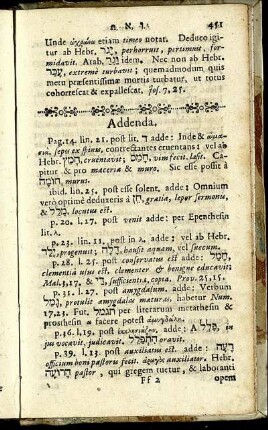 ו. א. ת. 451
Unde etiam timeo notat. Deduco igi-
tur ab Hebr. יגר, perhorruit, pertimuit, for-
midavit. Arab. idem. Nec non ab Hebr.
עכר, extremè turbavit; quemadmodum quis
metu præsentissimæ mortis turbatur, ut totus
cohorrescat & expallescat. Jos. 7, 25.
Addenda.
Pag. 14. lin. 21. post lit. ד adde: Inde &
sepes ex spinis, contrectantes cruentans; vel ab
Hebr. חמץ, cruentavit; חמס, vim fecit, læsit. Ca-
pitur & pro maceria & muro. Sic esse possit à
חומה murus.
ibid. lin. 25. post esse solent, adde: Omnium
verò optimè deduxeris à חן, gratia, lepor sermonis,
& מלל, locutus est.
p. 20. l. 17. post venit adde: per Epenthesin
lit. λ.
p. 23. lin. 11. post in 2. adde: vel ab Hebr.
ילד, progenuit; דלה, hausit aquam, vel succum.
p. 28. l. 25. post conservatus est adde: חמל,
clementiâ usus est, clementer & benignè educavit;
Mal. 3, 17. & די, sufficientia, copia, Prov. 25, 15.
p. 31. l. 27. post amygdalum. adde: Verbum
גמל, protulit amygdalas maturas, habetur Num.
17, 23. Fut. תגמל per literarum metathesin &
prosthesin α facere potest
p. 36. l. 19. post adde: A פלל, in
jus vocavit, judicavit. התפלל oravit.
p. 39. l. 13. post auxiliatus est. adde: רעה
officium boni pastoris fecit. auxiliator. Hebr.
הרועה pastor, qui gregem tuetur, & laboranti
Ff 2 opem